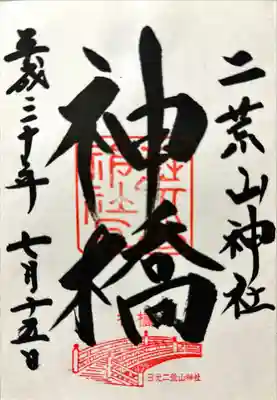 二荒山神社
神橋
平成三十年 七月十五日
日光二荒山神社